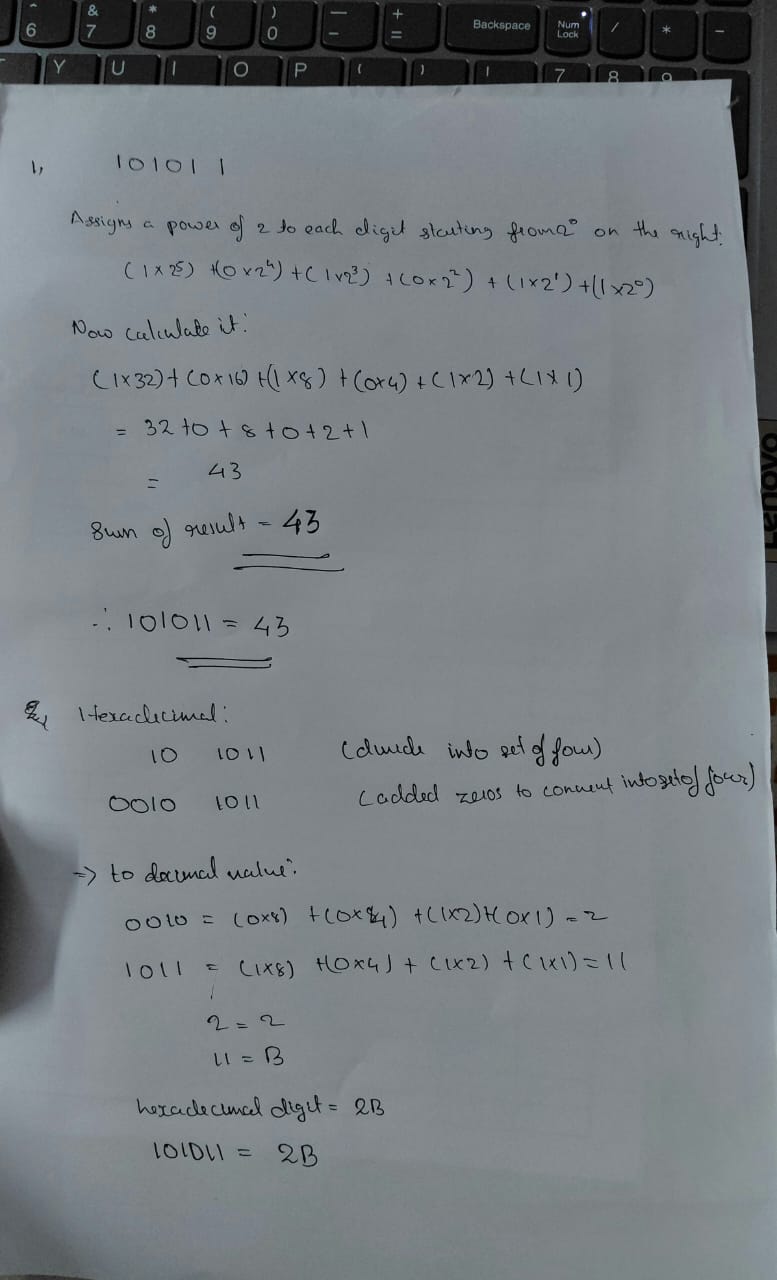 ^ & * ( ) — +
6 7 8 9 0 - = Backspace Num Lock / * -
Y U I O P 7 8 9
Lenovo
1, 101011
Assigns a power of 2 to each digit starting from 2⁰ on the right:
(1×2⁵) +(0×2⁴) +(1×2³) +(0×2²) + (1×2¹) +(1×2⁰)
Now calculate it:
(1×32)+ (0×16) +(1×8) +(0×4) +(1×2) +(1×1)
= 32 +0 +8 +0+2+1
= 43
Sum of result = 43
∴ 101011 = 43
2, Hexadecimal:
10 1011 (divide into set of four)
0010 1011 (added zeros to convert into set of four)
=> to decimal value:
0010 = (0×8) +(0×4) +(1×2)+(0×1) = 2
1011 = (1×8) +(0×4) + (1×2) +(1×1)=11
2 = 2
11 = B
hexadecimal digit = 2B
101011 = 2B